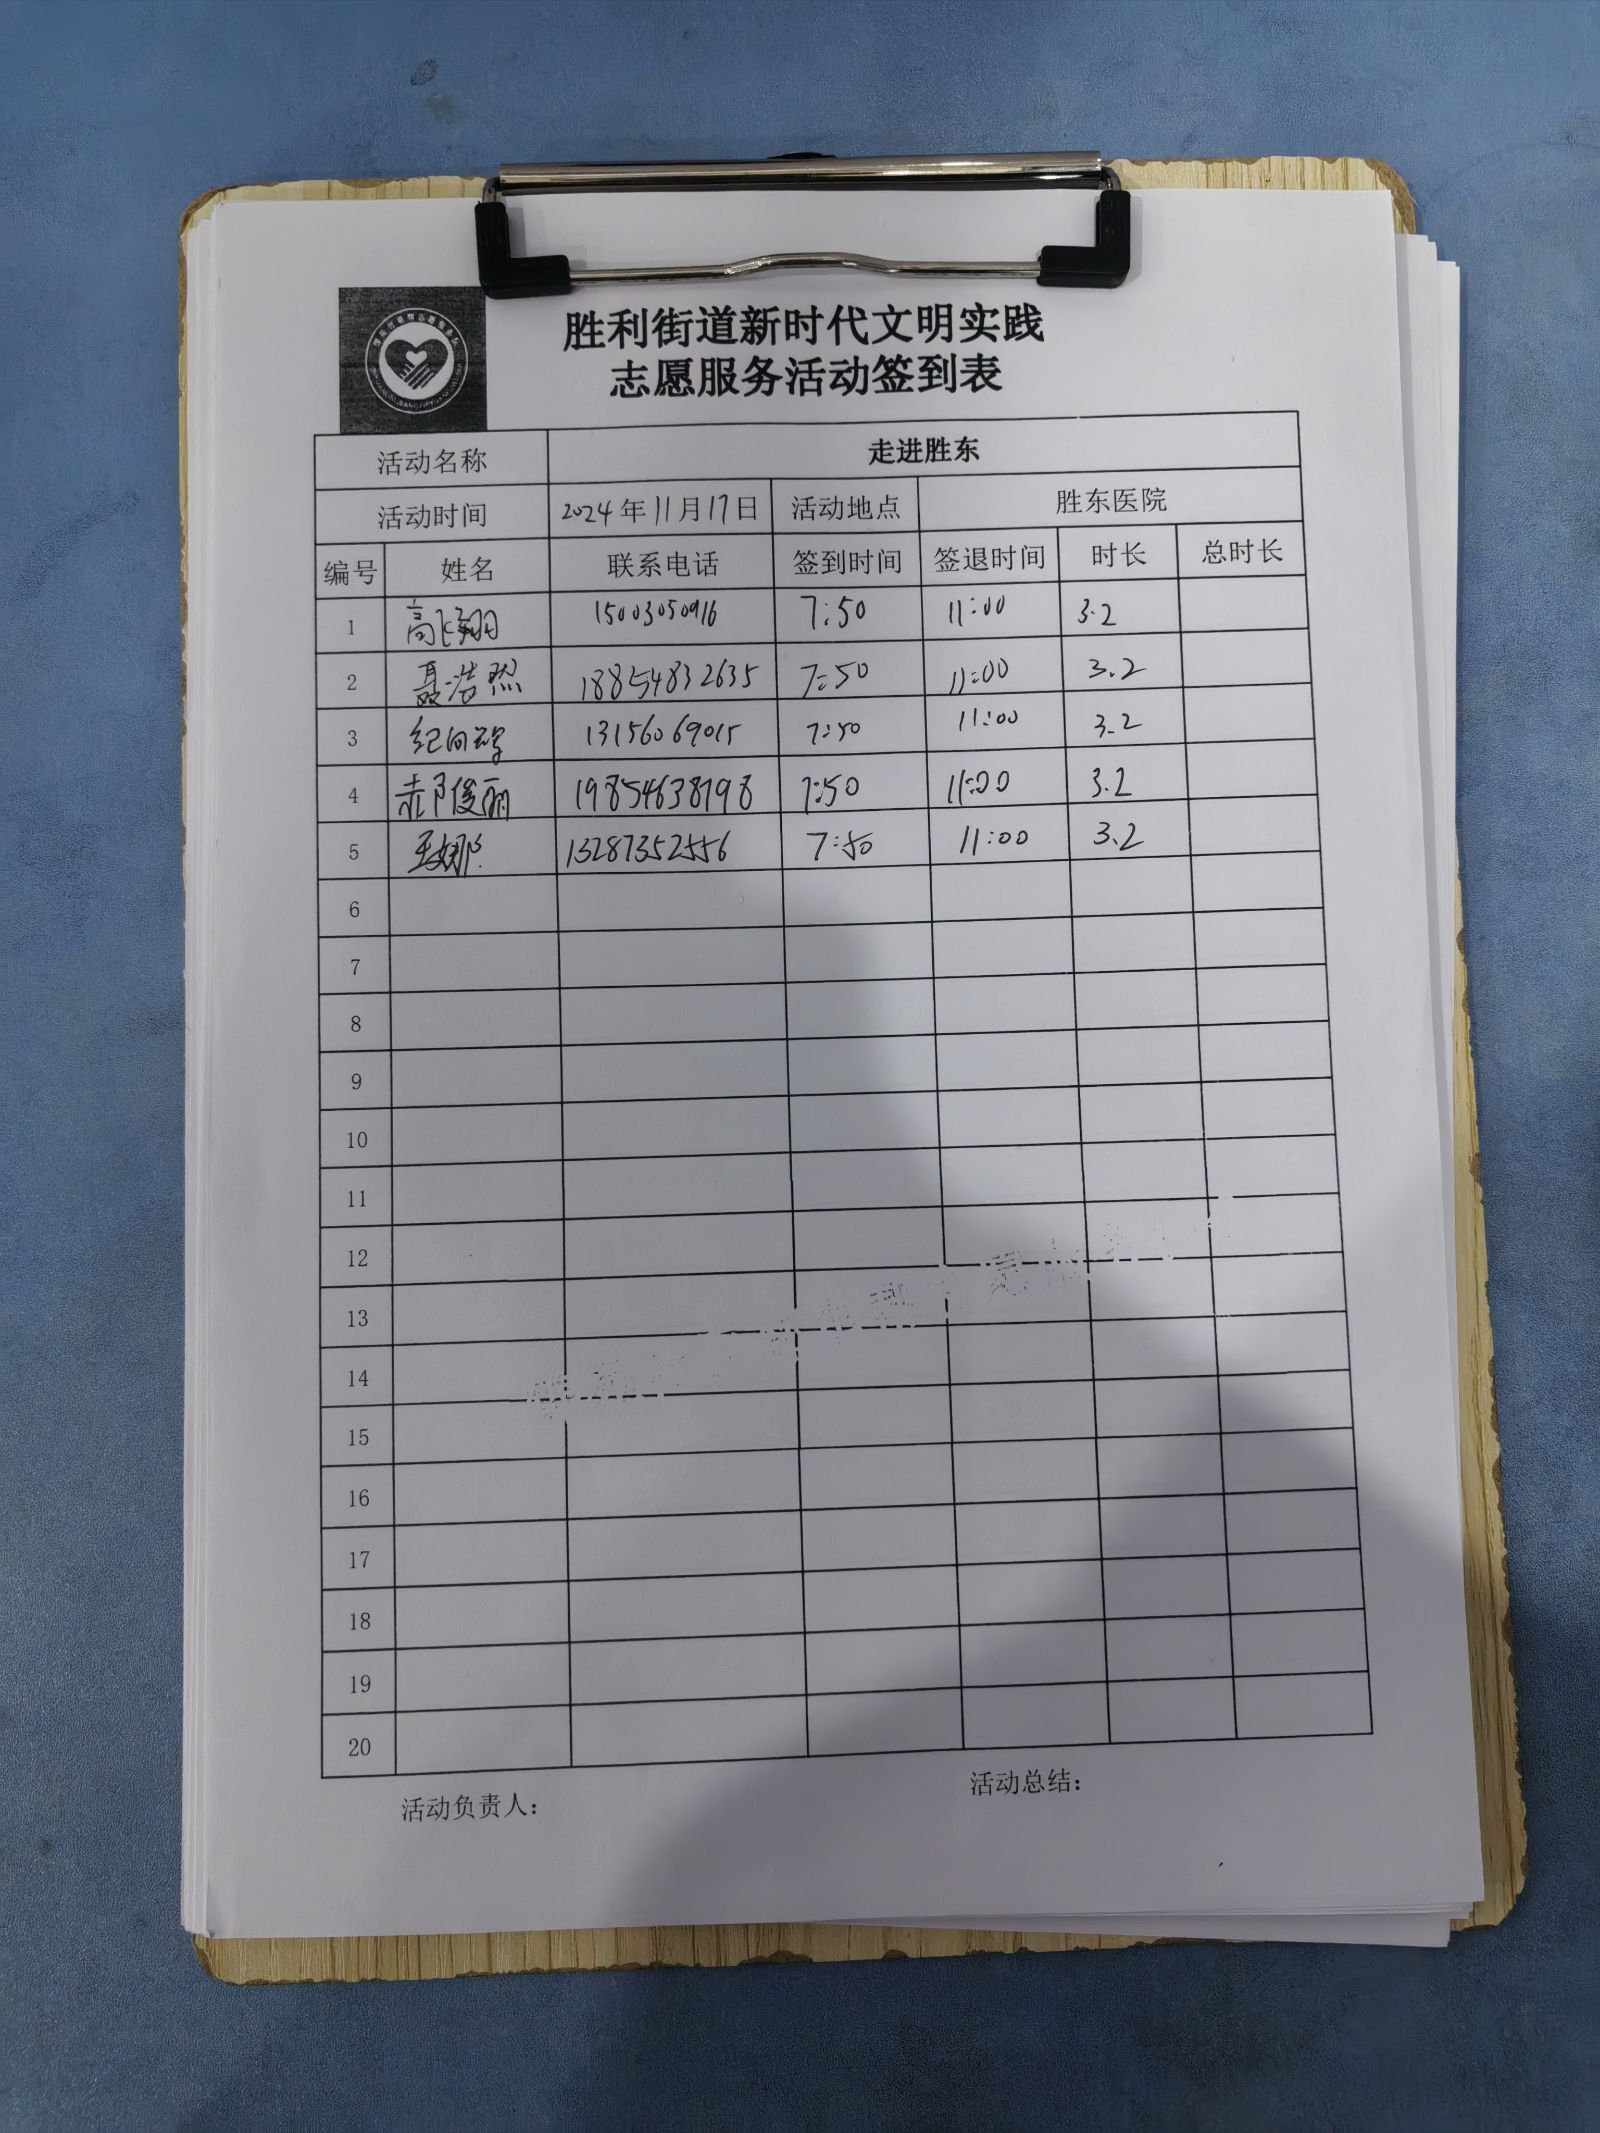 胜利街道新时代文明实践
志愿服务活动签到表
活动名称 走进胜东
活动时间 2024年11月17日 活动地点 胜东医院
编号 姓名 联系电话 签到时间 签退时间 时长 总时长
1 高飞翔 15003050916 7:50 11:00 3.2
2 聂浩然 18854832635 7:50 11:00 3.2
3 纪向 13156069015 7:50 11:00 3.2
4 郝俊丽 19854638798 7:50 11:00 3.2
5 王娜 13287352556 7:50 11:00 3.2
6
7
8
9
10
11
12
13
14
15
16
17
18
19
20
活动负责人: 活动总结: